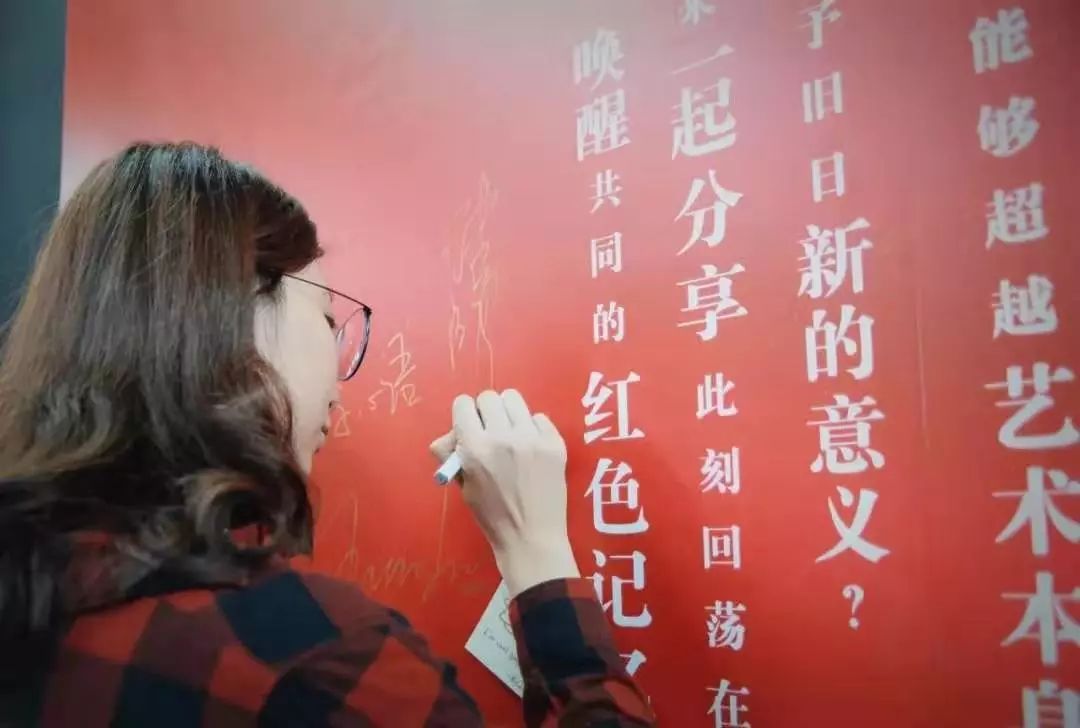 能够超越艺术本
予旧日新的意义？
一起分享此刻回荡在
唤醒共同的红色记